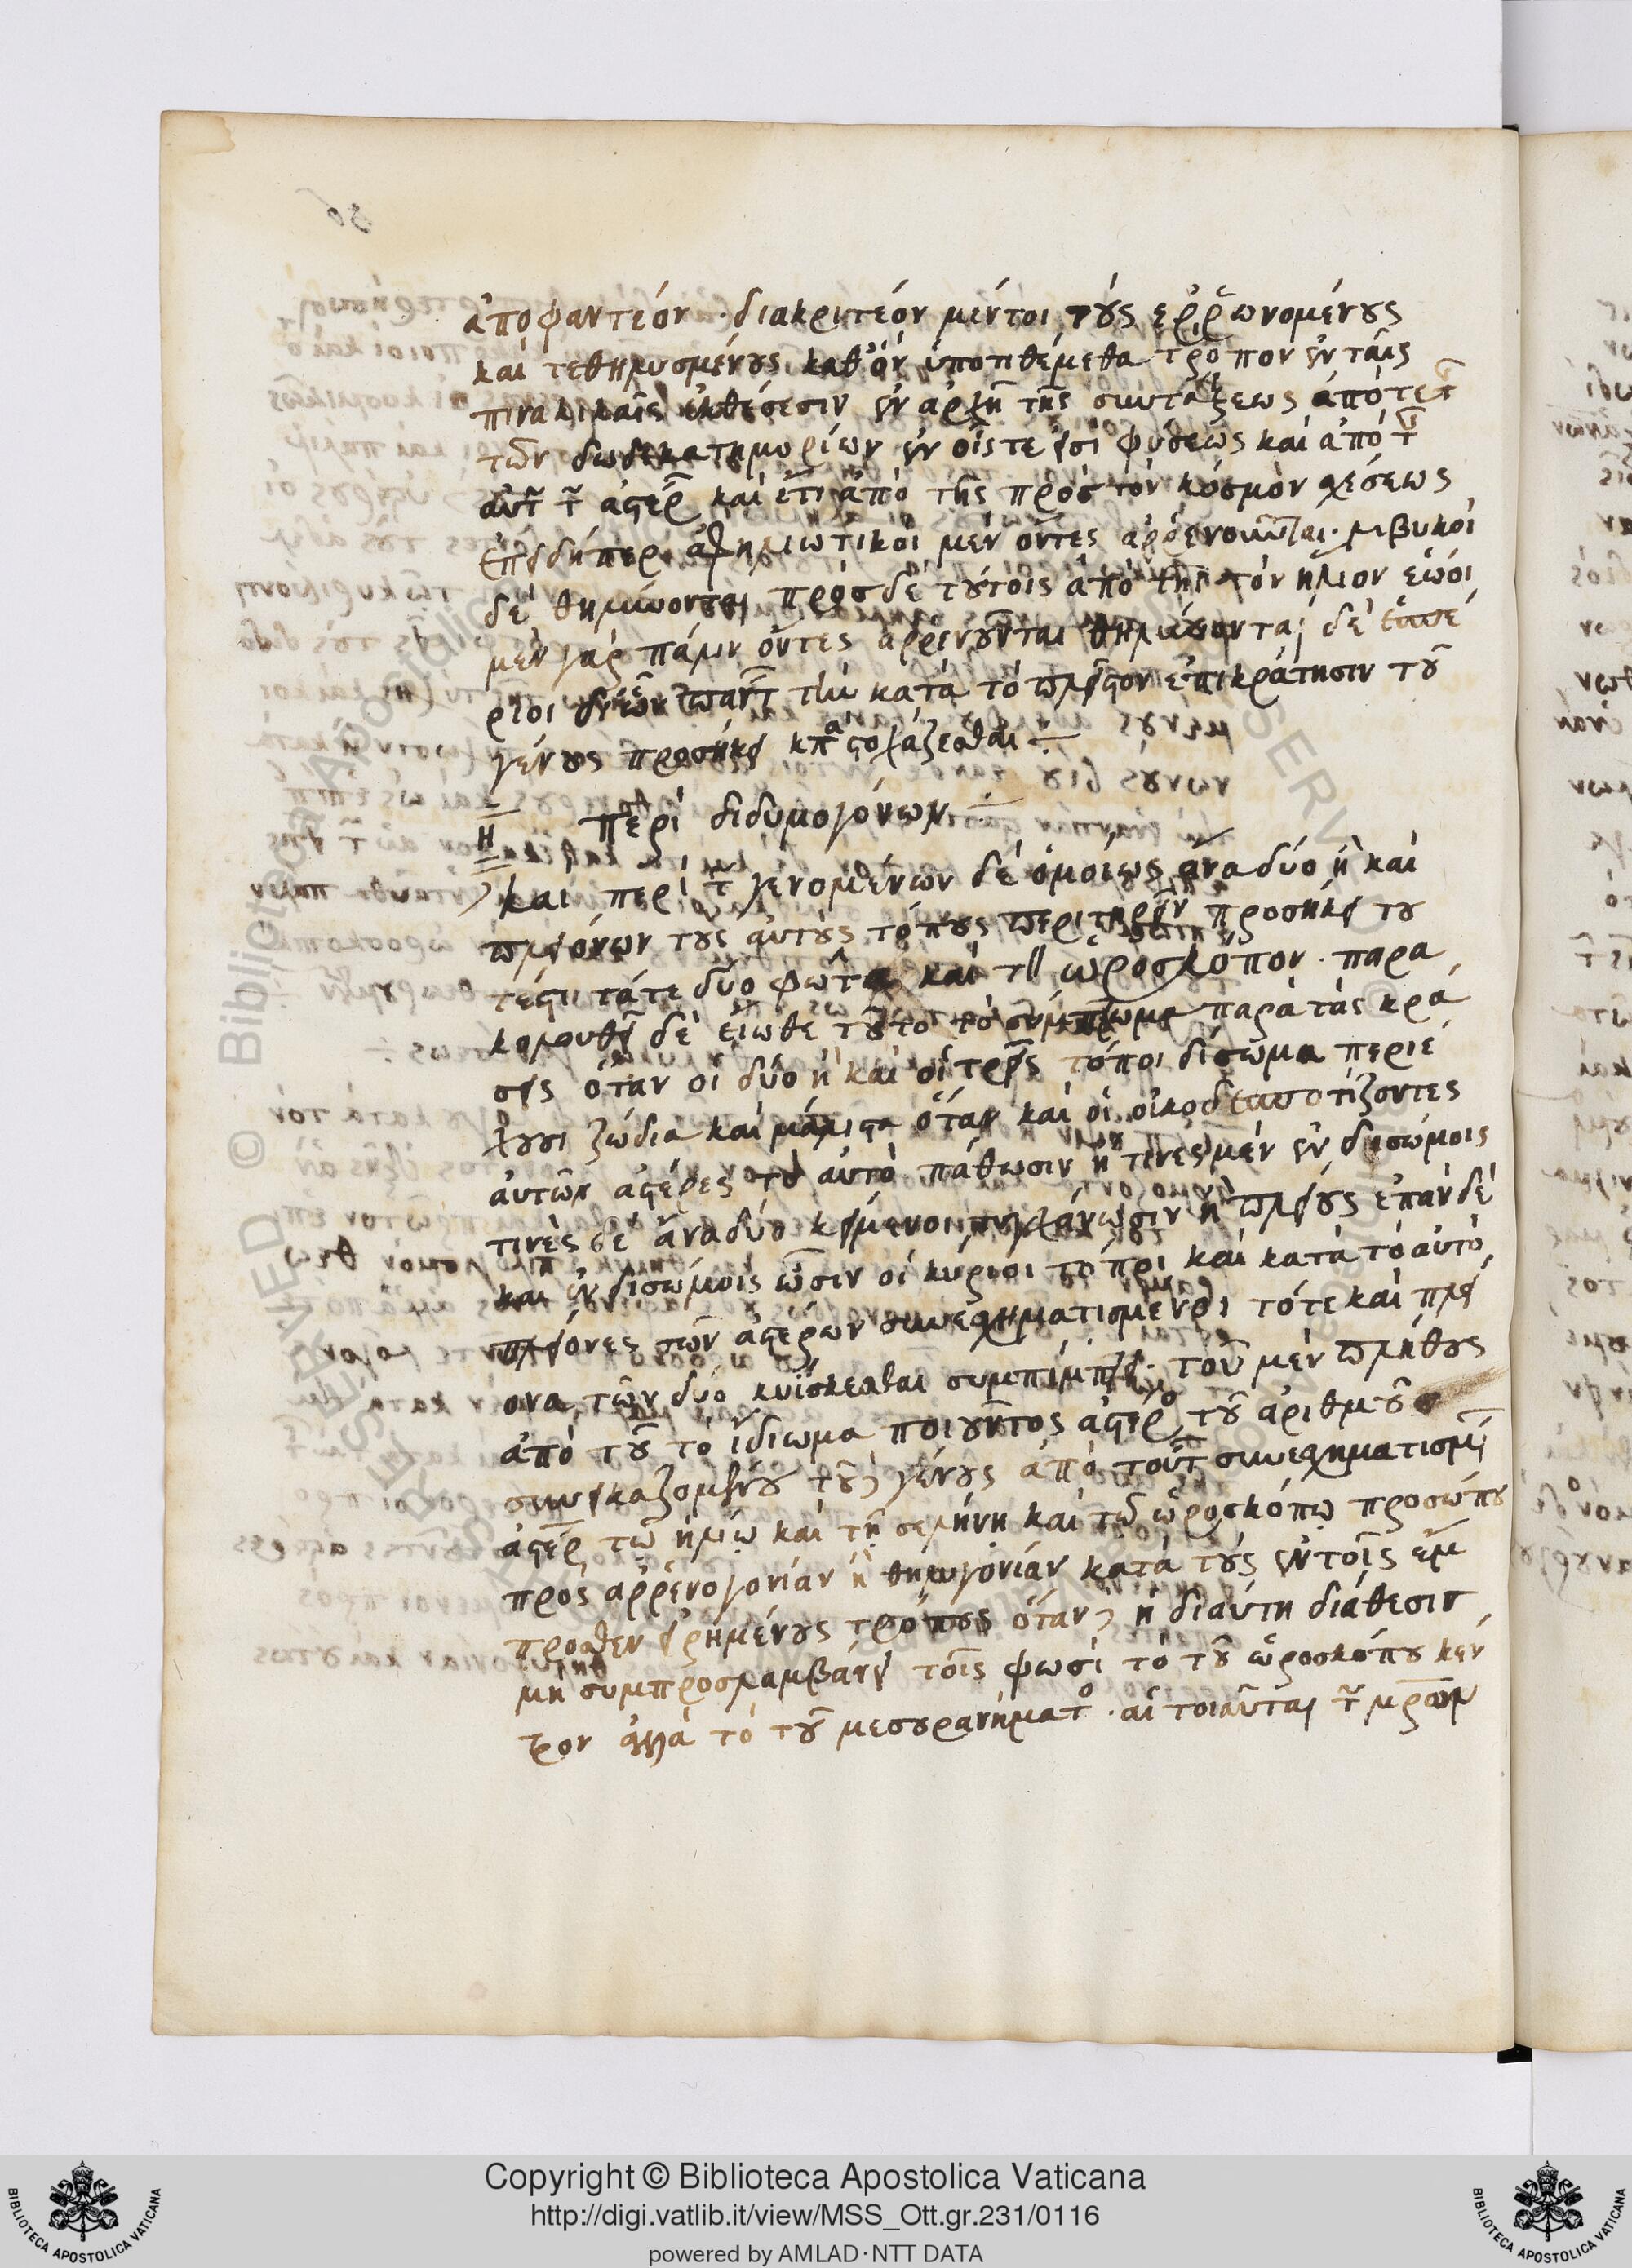 ἀποφαντέον · διακριτέον μέντοι τοὺς ἐῤῥωνομένους
καὶ τεθηλυσμένους καθ' ὃν ὑποτιθέμεθα τρόπον ἐν ταῖς
πινακικαῖς ἐκθέσεσιν ἐν ἀρχῇ τῆς συντάξεως ἀπό τε τ
τῶν δωδεκατημορίων ἐν οἷς τε εἰσὶ φύσεως καὶ ἀπὸ τ
αὐτ τ ἀστέρ καὶ ἔτι ἀπὸ τῆς πρὸς τὸν κόσμον σχέσεως
ἐπειδήπερ ἀπηλιωτικοὶ μὲν ὄντες ἀῤῥενοῦνται · λιβυκοὶ
δὲ θηλύνονται πρὸς δὲ τούτοις ἀπὸ τῆς τὸν ἥλιον ἑῷοι
μὲν γὰρ πάλιν ὄντες ἀῤῥενοῦνται θηλύνονται δὲ ἑσπέ
ριοι δι' ὧν παντ τὴν κατὰ τὸ πλεῖστον ἐπικράτησιν τοῦ
γένους προσήκει κπα στοχάζεσθαι ÷
Η Περὶ διδυμογόνων ÷
και περὶ τ γενομένων δὲ ὁμοίως ἀνα δύο ἢ καὶ
πλειόνων τοὺς αὐτοὺς τόπους περιτηρεῖν προσήκει του
τέστι τά τε δύο φῶτα καὶ τ ὡροσκόπον · παρα
κολουθεῖ δὲ εἴωθε τοῦτο τὸ σύμπτωμα παρὰ τὰς κρα
σεις ὅταν οἱ δύο ἢ καὶ οἱ τρεῖς τόποι δίσωμα περιέ
χουσι ζώδια καὶ μάλιστα ὅταν καὶ οἱ οἰκοδεσποτίζοντες
αὐτῶν ἀστέρες τὸ αὐτὸ πάθωσιν ἤ τινες μὲν ἐν δισώμοις
τινὲς δὲ ἀνα δύο κείμενοι τυγχάνωσιν ἢ πλείους ἐπὰν δὲ
καὶ ἐν δισώμοις ὦσιν οἱ κύριοι τόποι καὶ κατὰ τὸ αὐτὸ
πλείονες τῶν ἀστέρων συνεσχηματισμένοι τότε καὶ πλεί
ονα τῶν δύο κυΐσκεσθαι συμπίμπτει · τοῦ μὲν πλήθους
ἀπὸ τοῦ τὸ ἰδίωμα ποιοῦντος ἀστέρο τοῦ ἀριθμοῦ
συνεικαζομένου τοῦ γένους ἀπὸ τούτ συνεσχηματισμ
ἀστέρ τῷ ἡλίῳ καὶ τῇ σελήνῃ καὶ τῷ ὡροσκόπῳ προσώπου
πρὸς ἀῤῥενογονίαν ἢ θηλυγονίαν κατὰ τοὺς ἐν τοῖς ἔμ
προσθεν εἰρημένους τρόπους ὅταν ἡ διαύτη διάθεσις
μὴ συμπροσλαμβάνῃ τοῖς φωσὶ τὸ τοῦ ὡροσκόπου κέν
τρον ἀλλὰ τὸ τοῦ μεσουρανήματο · αἱ τοιαῦται τ μρων
Copyright © Biblioteca Apostolica Vaticana
http://digi.vatlib.it/view/MSS_Ott.gr.231/0116
powered by AMLAD·NTT DATA
BIBLIOTECA APOSTOLICA VATICANA
BIBLIOTECA APOSTOLICA VATICANA